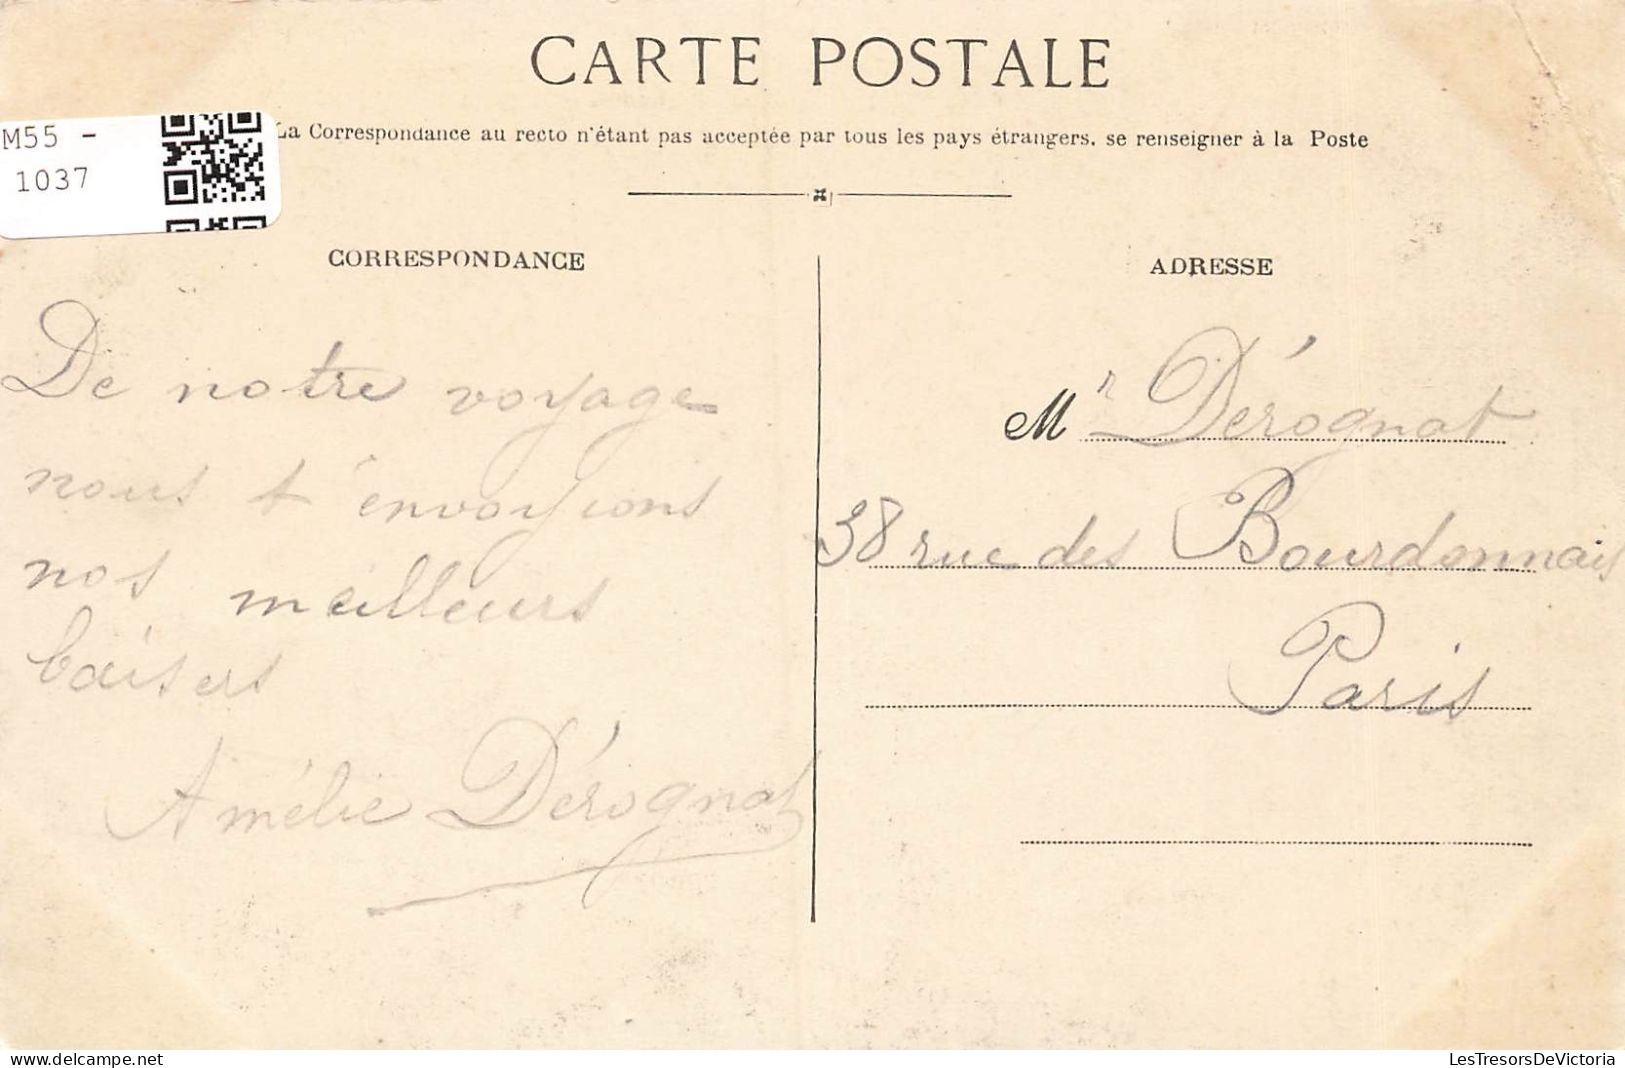 CARTE POSTALE
M55 -
1037
La Correspondance au recto n'étant pas acceptée par tous les pays étrangers, se renseigner à la Poste
CORRESPONDANCE
De notre voyage
nous t'envoyions
nos meilleurs
baisers
Amélie Dérognat
ADRESSE
Mr Dérognat
38 rue des Bourdonnais
Paris
delcampe.net
LesTresorsDeVictoria